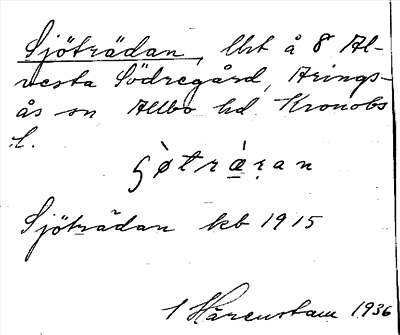 Sjöträdan, lht å 8 Al-
vesta Södregård, Arings-
ås sn Allbo hd. Kronobs
l.
Sjöträdan kb 1915
1 Hårenstam 1936